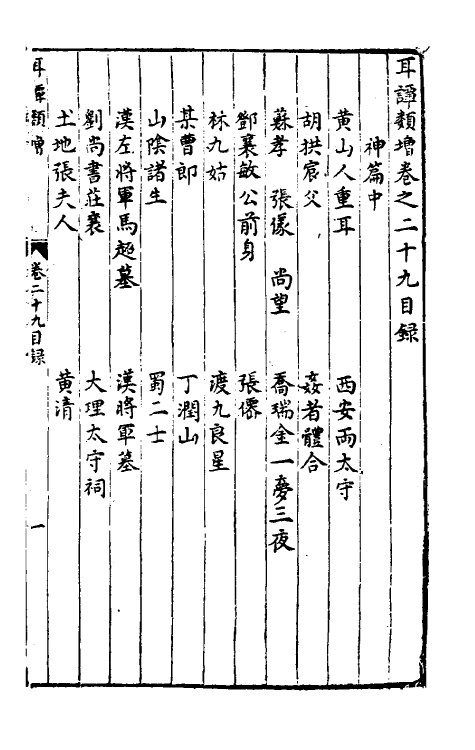 耳譚類增卷之二十九目録
神篇中
黃山人重耳　西安兩太守
胡拱宸父　姦者體合
蘇孝　張儫　尚望　喬瑞金一夢三夜
鄧襄敏公前身　張僊
林九姑　渡九良星
某曹郎　丁潤山
山陰諸生　蜀二士
漢左將軍馬超墓　漢將軍墓
劉尚書莊襄　大理太守祠
土地張夫人　黃清
耳譚類增　卷二十九目録　一